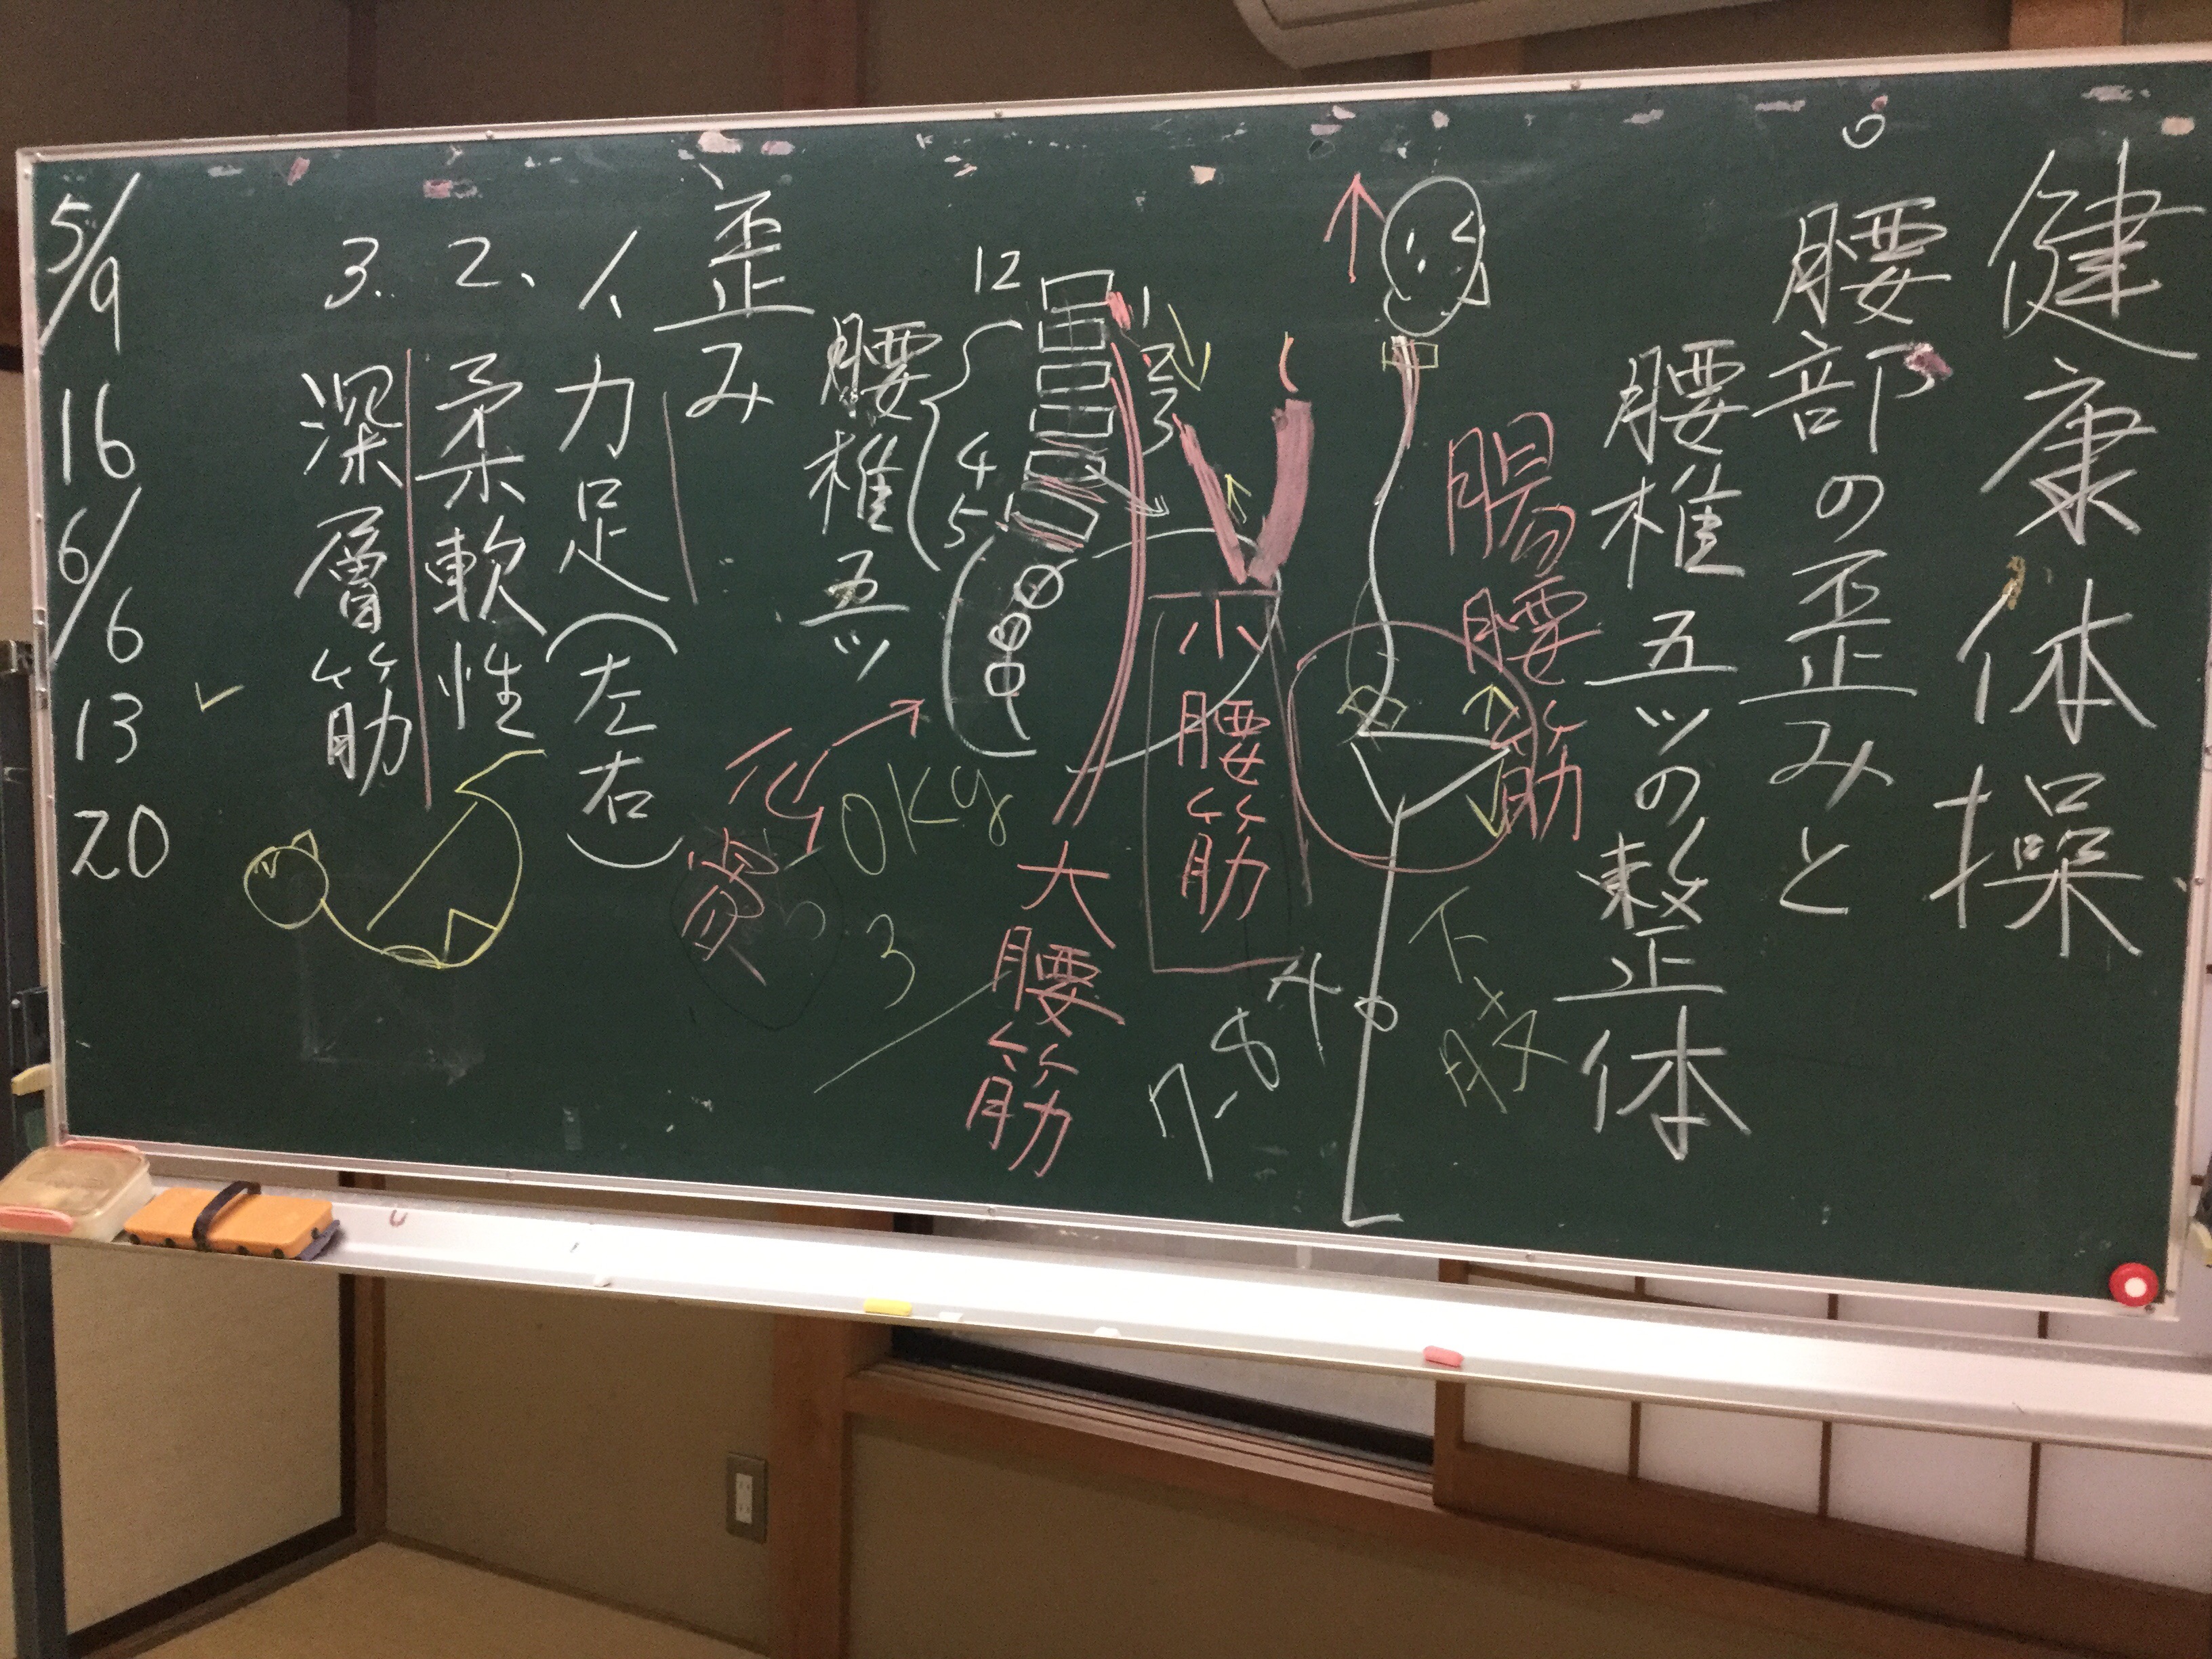 健康体操
腰部の歪みと
腰椎五ツの整体
腸腰筋
小腰筋
大腰筋
12
1
2
3
4
5
腰椎五ツ
歪み
1、力足(左右)
2、柔軟性
3、深層筋
0kg
3
7-8
下
5/9
16
6/6
13
20